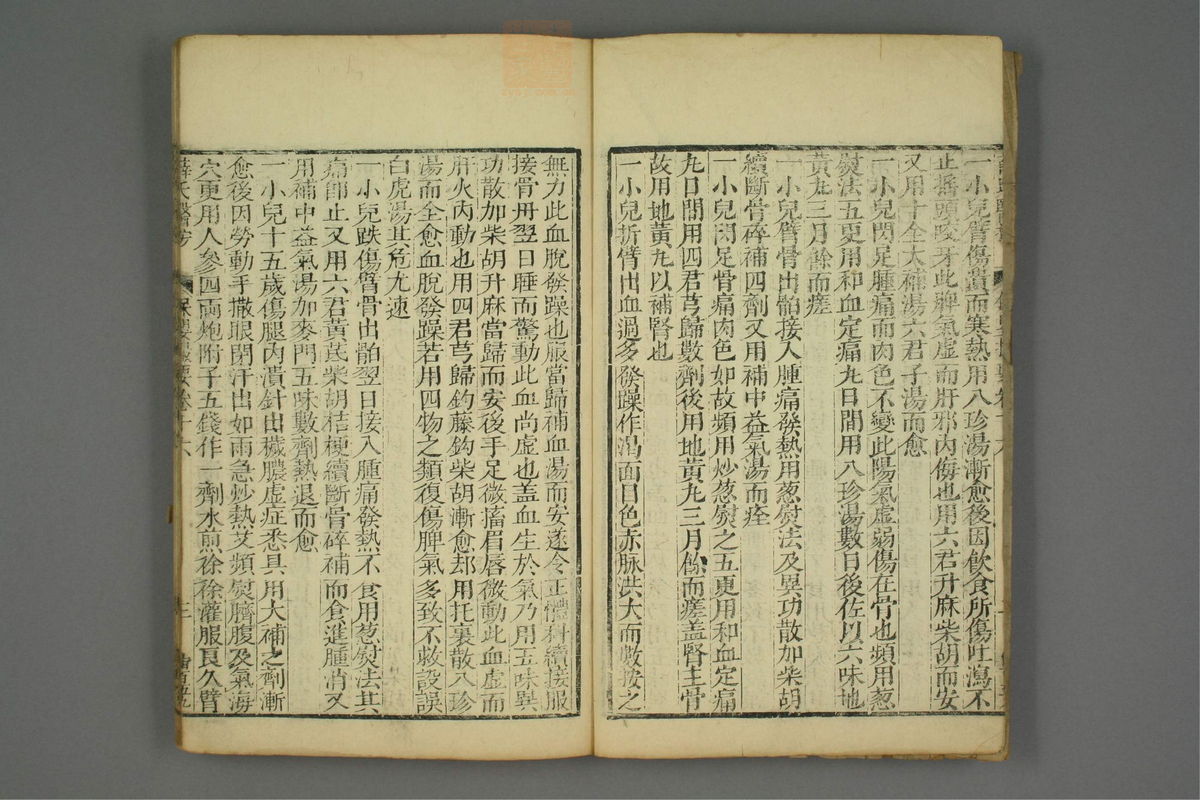 一小兒臂傷潰而寒熱用八珍湯漸愈後因飲食所傷吐瀉不
止搖頭咬牙此脾氣虛而肝邪內侮也用六君升麻柴胡而安
又用十全大補湯六君子湯而愈
一小兒閃足腫痛而肉色不變此陽氣虛弱傷在骨也頻用葱
熨法五更用和血定痛丸日間用八珍湯數日後佐以六味地
黃丸三月餘而瘥
一小兒臂骨出䯊接入腫痛發熱用葱熨法及異功散加柴胡
續斷骨碎補四劑又用補中益氣湯而痊
一小兒閃足骨痛肉色如故頻用炒葱熨之五更用和血定痛
丸日間用四君芎歸數劑後用地黃丸三月餘而瘥盖腎主骨
故用地黃丸以補腎也
一小兒折臂出血過多發躁作渴面目色赤脉洪大而數按之
無力此血脫發躁也服當歸補血湯而安遂令正體科續接服
接骨丹翌日睡而驚動此血尚虛也盖血生於氣乃用五味異
功散加柴胡升麻當歸而安後手足微搐眉唇微動此血虛而
肝火內動也用四君芎歸鈎藤鈎柴胡漸愈却用托裏散八珍
湯而全愈血脫發躁若用四物之類復傷脾氣多致不救設誤
白虎湯其危尤速
一小兒跌傷臂骨出䯊翌日接入腫痛發熱不食用葱熨法其
痛即止又用六君黃芪柴胡桔梗續斷骨碎補而食進腫消又
用補中益氣湯加麥門五味數劑熱退而愈
一小兒十五歲傷腿內潰針出穢膿虛症悉具用大補之劑漸
愈後因勞動手撒眼閉汗出如雨急炒熱艾頻熨臍腹及氣海
穴更用人參四兩炮附子五錢作一劑水煎徐徐灌服良久臂
保嬰撮要卷十六
三